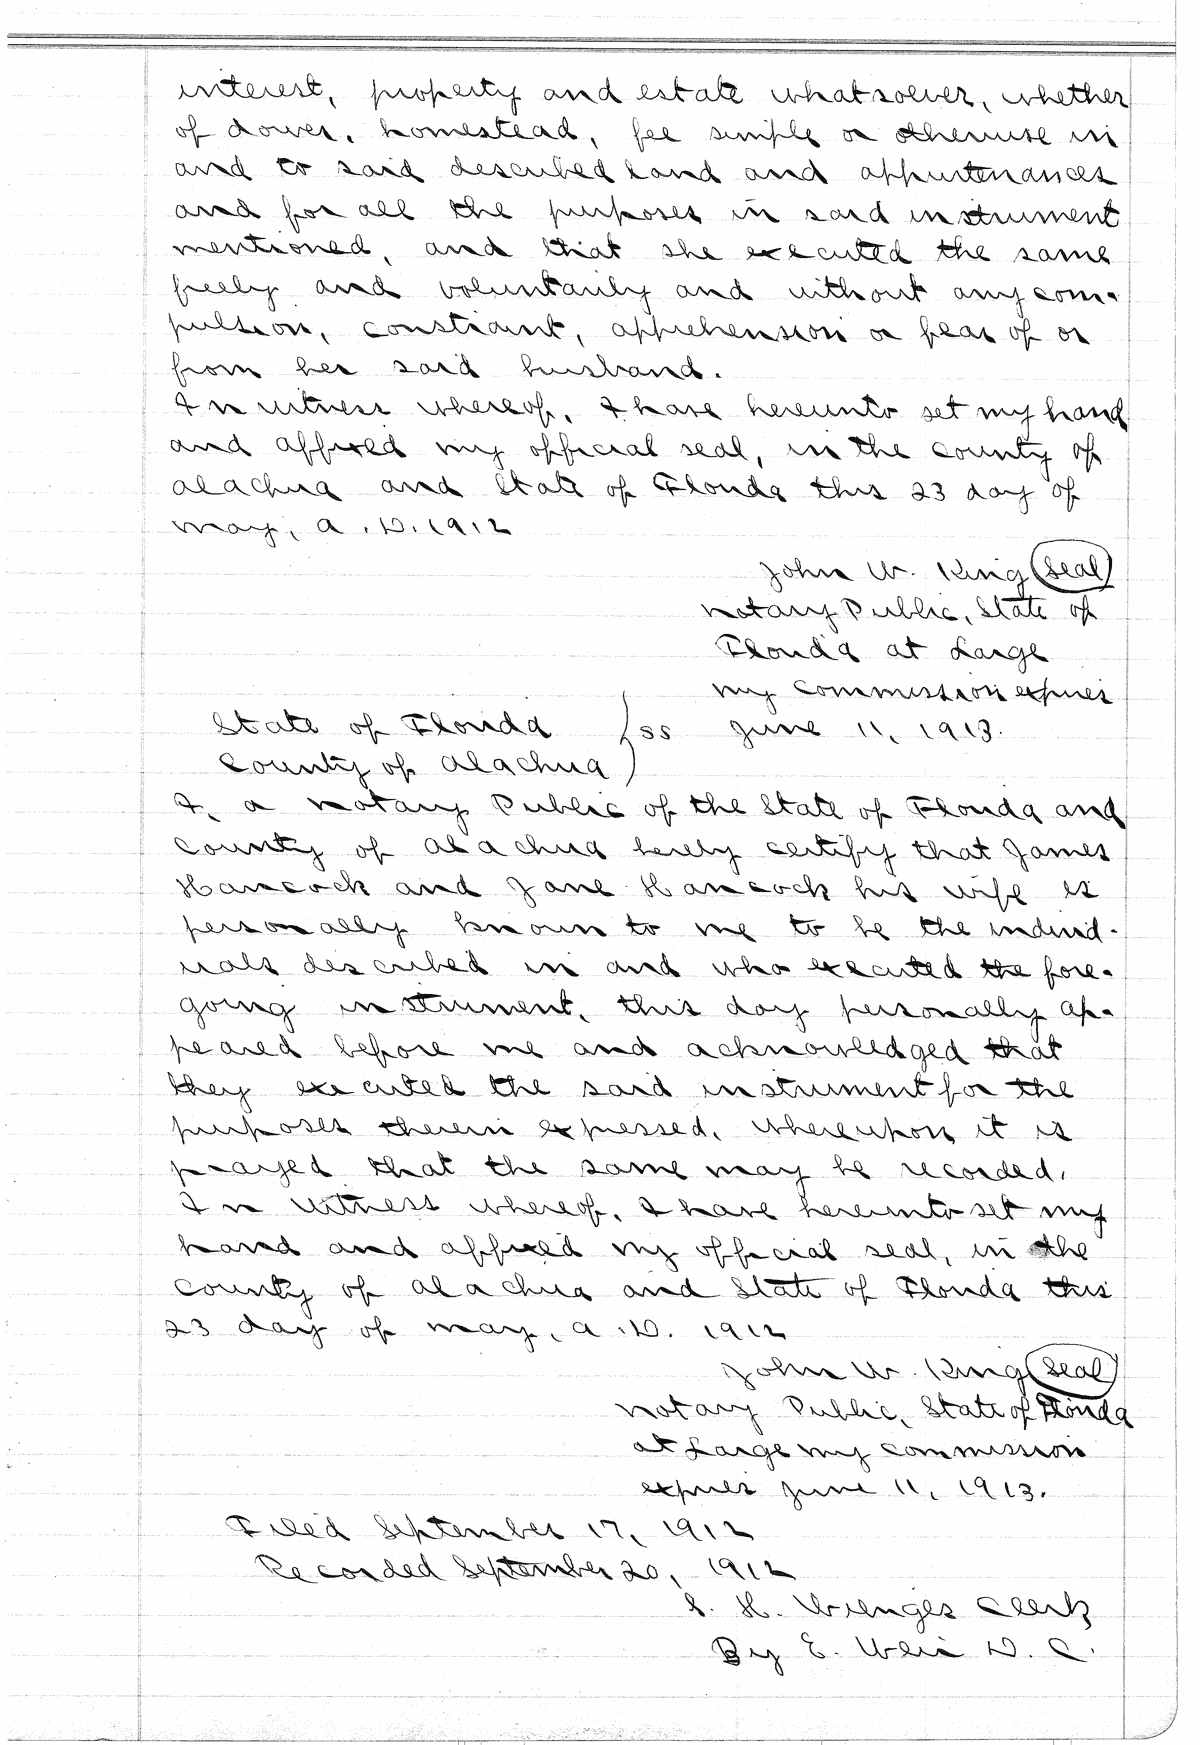 interest, property and estate whatsoever, whether
of dower, homestead, fee simple or otherwise in
and to said described land and appurtenances
and for all the purposes in said instrument
mentioned, and that she executed the same
freely and voluntarily and without any com-
pulsion, constraint, apprehension or fear of or
from her said husband.
In witness whereof, I have hereunto set my hand
and affixed my official seal, in the County of
Alachua and State of Florida this 23 day of
May, A.D. 1912
John W. King (Seal)
Notary Public, State of
Florida at Large
my commission expires
State of Florida } ss June 11, 1913.
County of Alachua }
I, a Notary Public of the State of Florida and
County of Alachua hereby certify that James
Hancock and Jane Hancock his wife is
personally known to me to be the individ-
uals described in and who executed the fore-
going instrument, this day personally ap-
peared before me and acknowledged that
they executed the said instrument for the
purposes therein expressed, whereupon it is
prayed that the same may be recorded.
In witness whereof, I have hereunto set my
hand and affixed my official seal, in the
County of Alachua and State of Florida this
23 day of May, A.D. 1912
John W. King (Seal)
Notary Public, State of Florida
at Large my commission
expires June 11, 1913.
Filed September 17, 1912
Recorded September 20, 1912
S. H. Wienges Clerk
By E. Weir D.C.